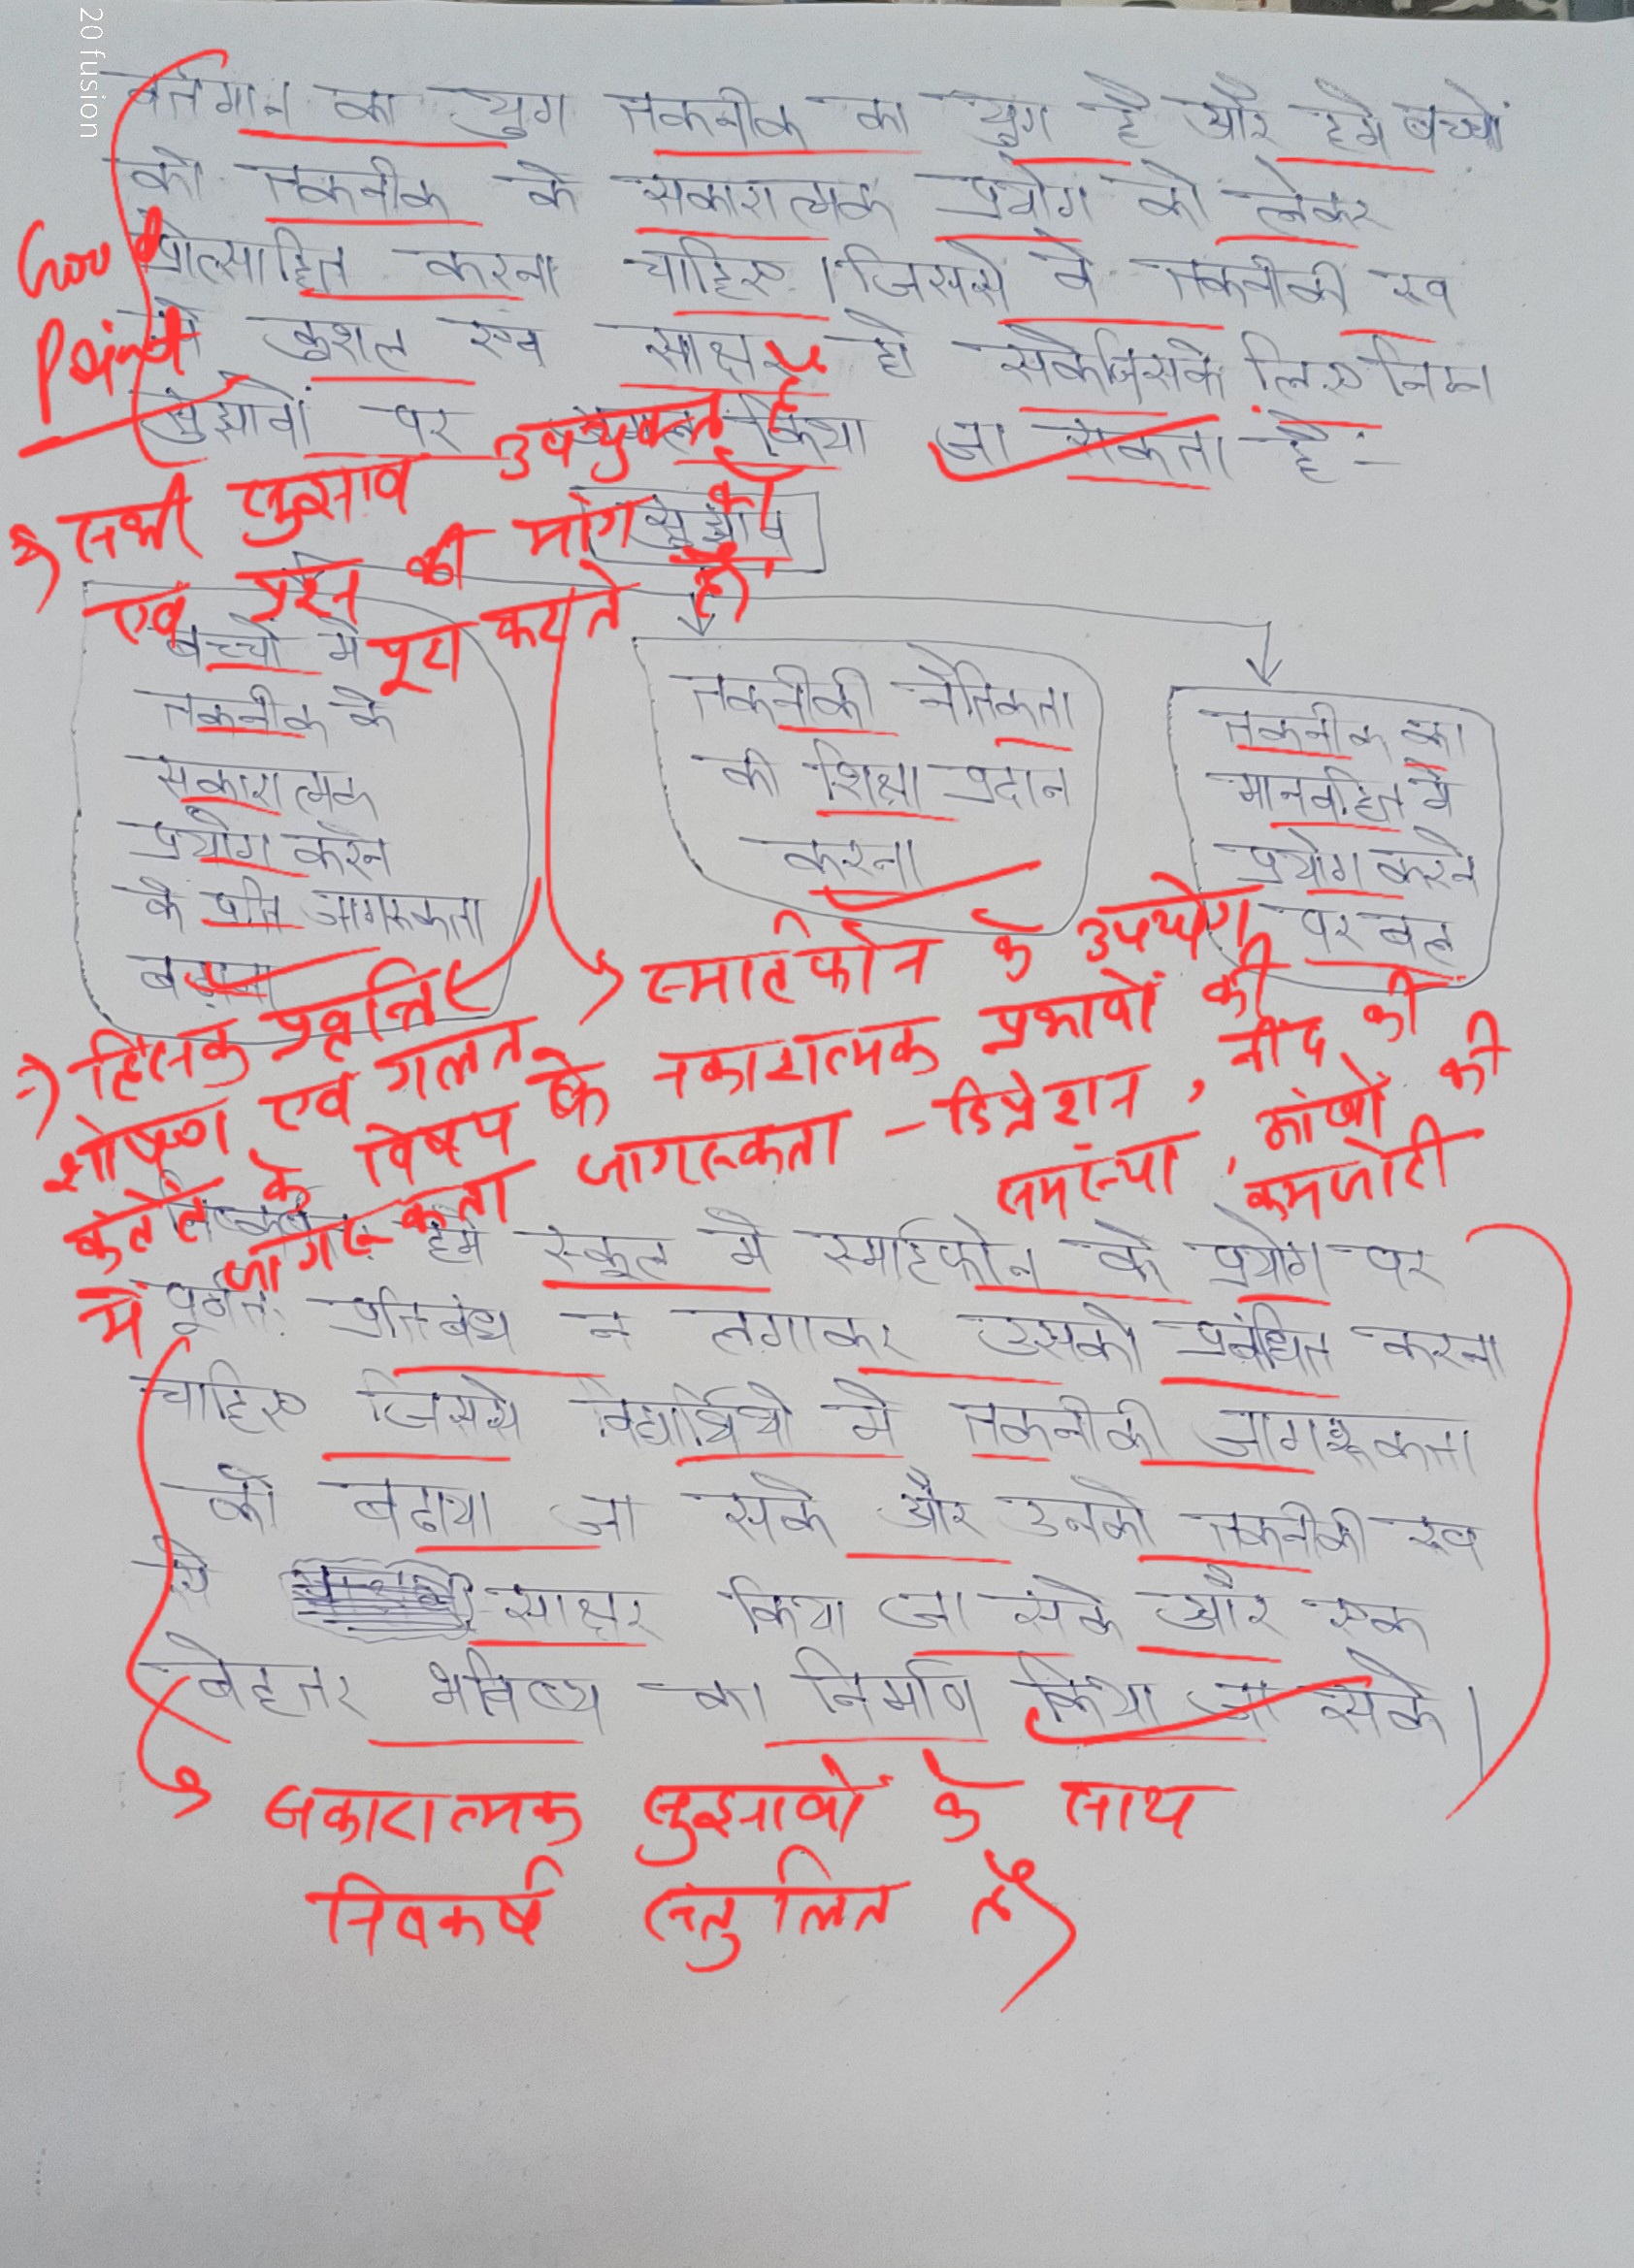 20 fusion
वर्तमान का युग तकनीक का युग है और हमे बच्चों
को तकनीक के सकारात्मक प्रयोग को लेकर
प्रोत्साहित करना चाहिए। जिससे वे तकनीकी रूप
से कुशल एवं साक्षर हो सके जिसके लिए निम्न
सुझावों पर किया जा सकता है:-
Good
Point
→ सभी सुझाव उपयुक्त है
एवं प्रश्न की मांग को
पूरा करते है।
सुझाव
बच्चो मे
तकनीक के
सकारात्मक
प्रयोग करने
के प्रति जागरूकता
बढ़ाना
तकनीकी नैतिकता
की शिक्षा प्रदान
करना
तकनीक का
मानवहित मे
प्रयोग करने
पर बल
→ हिंसक प्रवृत्ति
शोषण एवं गलत
कंटेंट के विषय
में जागरूकता
→ स्मार्टफोन के उपयोग
के नकारात्मक प्रभावों की
जागरूकता – डिप्रेशन, नींद की
समस्या, आंखों की
कमजोरी
निष्कर्षतः हमे स्कूल मे स्मार्टफोन के प्रयोग पर
पूर्णतः प्रतिबंध न लगाकर उसको प्रबंधित करना
चाहिए जिससे विद्यार्थियो मे तकनीकी जागरूकता
को बढाया जा सके और उनको तकनीकी रूप
से साक्षर किया जा सके और एक
बेहतर भविष्य का निर्माण किया जा सके।
सकारात्मक सुझावों के साथ
निष्कर्ष संतुलित है